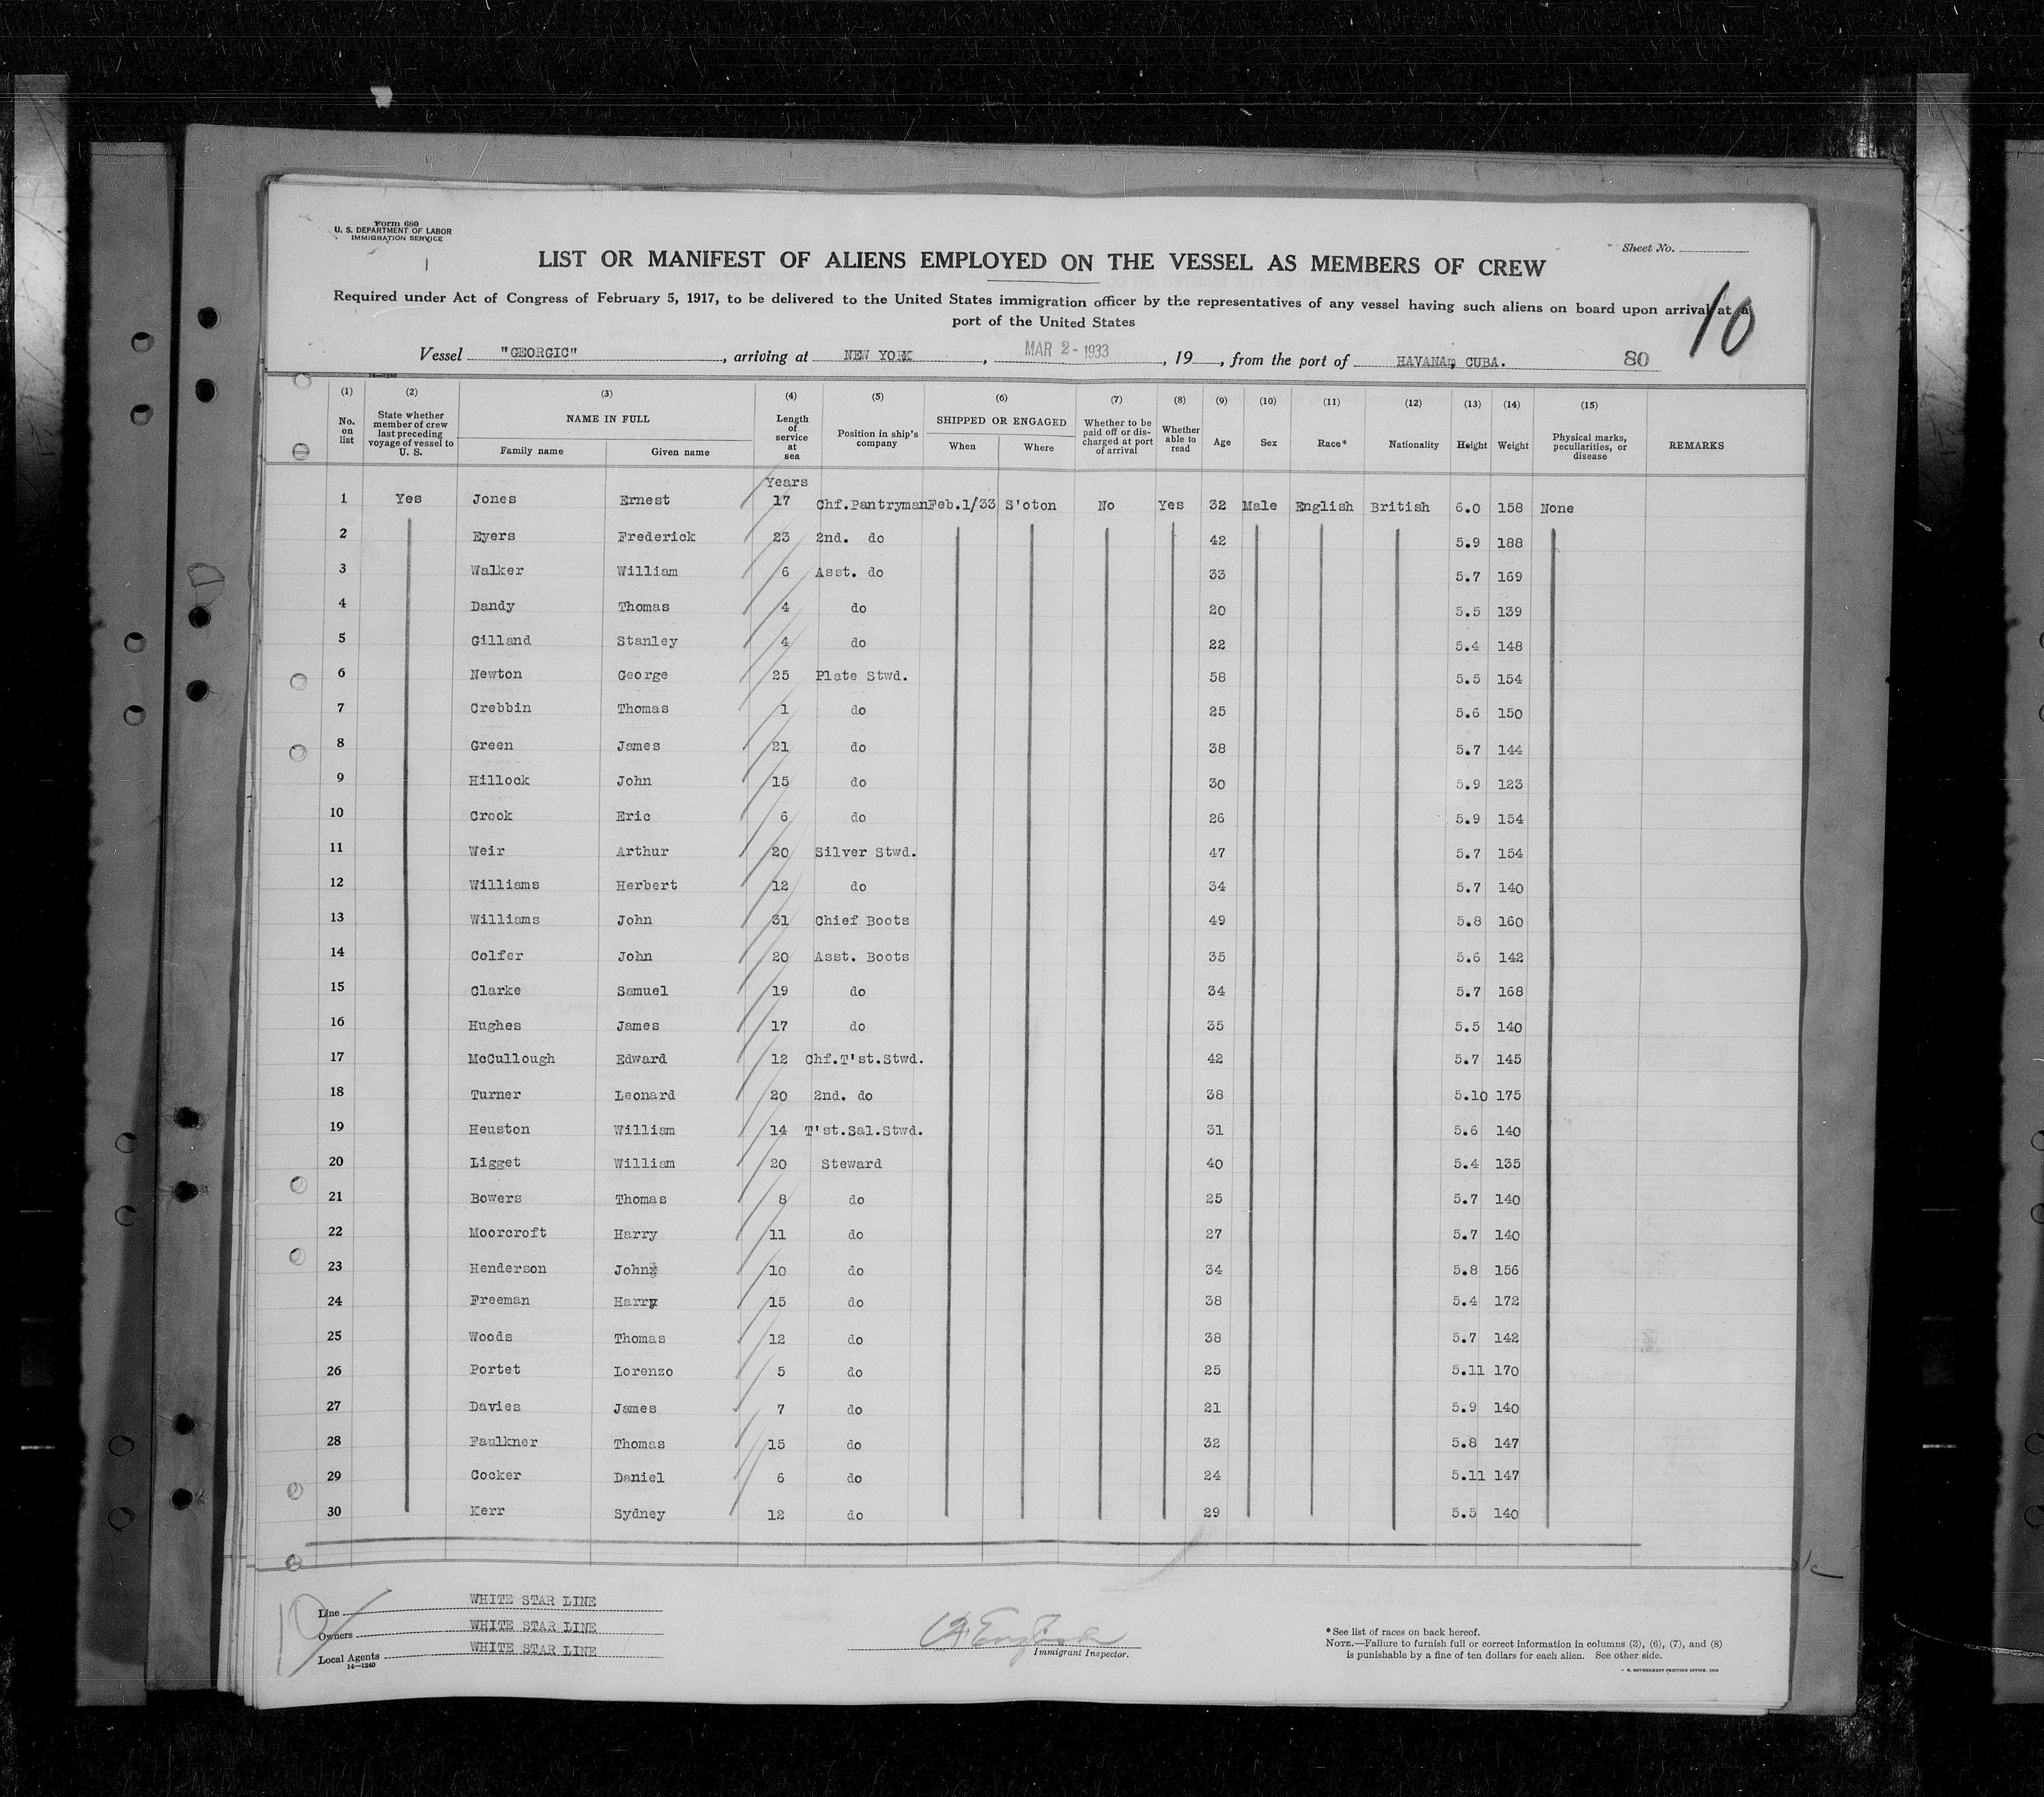 Form 680
U. S. DEPARTMENT OF LABOR
IMMIGRATION SERVICE
Sheet No.
LIST OR MANIFEST OF ALIENS EMPLOYED ON THE VESSEL AS MEMBERS OF CREW
10
Required under Act of Congress of February 5, 1917, to be delivered to the United States immigration officer by the representatives of any vessel having such aliens on board upon arrival at a
port of the United States
Vessel "GEORGIC", arriving at NEW YORK, MAR 2 - 1933, 19, from the port of HAVANA, CUBA. 80
14—1240
(1) (2) (3) (4) (5) (6) (7) (8) (9) (10) (11) (12) (13) (14) (15)
No. on list State whether member of crew last preceding voyage of vessel to U. S. NAME IN FULL Family name Given name Length of service at sea Position in ship's company SHIPPED OR ENGAGED When Where Whether to be paid off or discharged at port of arrival Whether able to read Age Sex Race* Nationality Height Weight Physical marks, peculiarities, or disease REMARKS
Years
1 Yes Jones Ernest 17 Chf.Pantryman Feb.1/33 S'oton No Yes 32 Male English British 6.0 158 None
2 Eyers Frederick 23 2nd. do 42 5.9 188
3 Walker William 6 Asst. do 33 5.7 169
4 Dandy Thomas 4 do 20 5.5 139
5 Gilland Stanley 4 do 22 5.4 148
6 Newton George 25 Plate Stwd. 58 5.5 154
7 Crebbin Thomas 1 do 25 5.6 150
8 Green James 21 do 38 5.7 144
9 Hillock John 15 do 30 5.9 123
10 Crook Eric 6 do 26 5.9 154
11 Weir Arthur 20 Silver Stwd. 47 5.7 154
12 Williams Herbert 12 do 34 5.7 140
13 Williams John 31 Chief Boots 49 5.8 160
14 Colfer John 20 Asst. Boots 35 5.6 142
15 Clarke Samuel 19 do 34 5.7 168
16 Hughes James 17 do 35 5.5 140
17 McCullough Edward 12 Chf.T'st.Stwd. 42 5.7 145
18 Turner Leonard 20 2nd. do 38 5.10 175
19 Heuston William 14 T'st.Sal.Stwd. 31 5.6 140
20 Ligget William 20 Steward 40 5.4 135
21 Bowers Thomas 8 do 25 5.7 140
22 Moorcroft Harry 11 do 27 5.7 140
23 Henderson John 10 do 34 5.8 156
24 Freeman Harry 15 do 38 5.4 172
25 Woods Thomas 12 do 38 5.7 142
26 Portet Lorenzo 5 do 25 5.11 170
27 Davies James 7 do 21 5.9 140
28 Faulkner Thomas 15 do 32 5.8 147
29 Cocker Daniel 6 do 24 5.11 147
30 Kerr Sydney 12 do 29 5.5 140
Line WHITE STAR LINE
Owners WHITE STAR LINE
Local Agents WHITE STAR LINE
14—1240
Immigrant Inspector.
*See list of races on back hereof.
NOTE.—Failure to furnish full or correct information in columns (3), (6), (7), and (8)
is punishable by a fine of ten dollars for each alien. See other side.